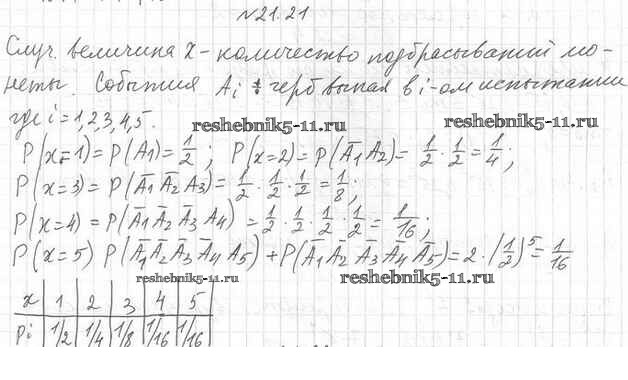 №21.21
Случ. величина x - количество подбрасываний мо-
неты. События Ai ÷ герб выпал в i-ом испытании
где i = 1,2,3,4,5.
reshebnik5-11.ru
P(x=1) = P(A1) = 1/2 ; P(x=2) = P(Ā1 A2) = 1/2 · 1/2 = 1/4 ;
P(x=3) = P(Ā1 Ā2 A3) = 1/2 · 1/2 · 1/2 = 1/8 ;
reshebnik5-11.ru
P(x=4) = P(Ā1 Ā2 Ā3 A4) = 1/2 · 1/2 · 1/2 · 1/2 = 1/16 ;
P(x=5) P(Ā1 Ā2 Ā3 Ā4 A5) + P(Ā1 Ā2 Ā3 Ā4 Ā5) = 2 · (1/2)^5 = 1/16
reshebnik5-11.ru reshebnik5-11.ru
x | 1 | 2 | 3 | 4 | 5
pi | 1/2 | 1/4 | 1/8 | 1/16 | 1/16